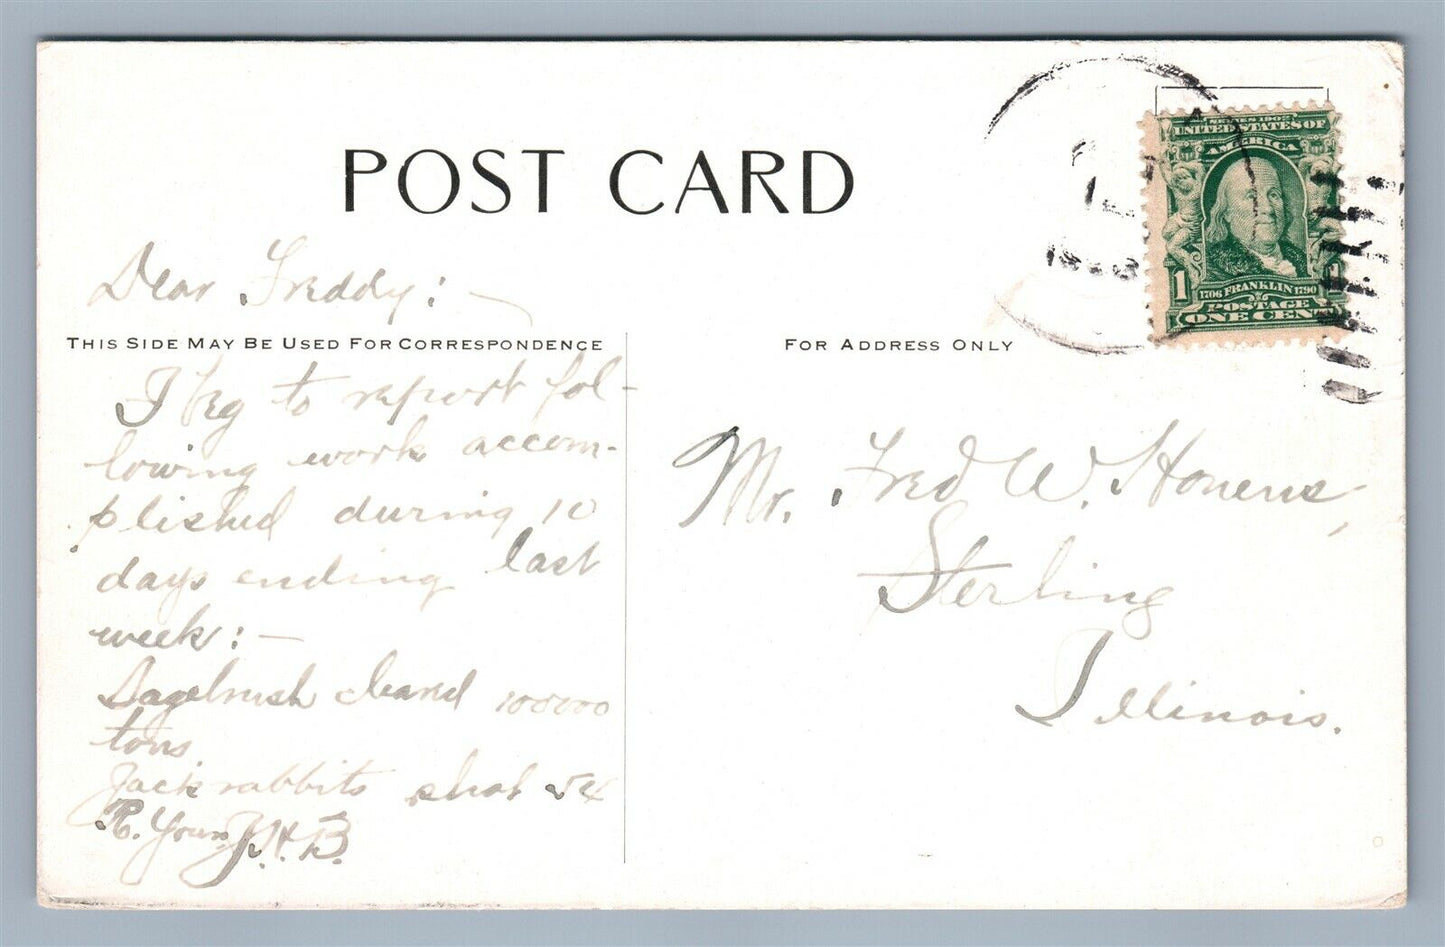 POST CARD
Dear Freddy: —
THIS SIDE MAY BE USED FOR CORRESPONDENCE
I beg to report fol-
lowing work accom-
plished during 10
days ending last
week: —
Sagebrush cleared 100000
tons
Jack rabbits shot 54
R. Yours J. H. B.
FOR ADDRESS ONLY
Mr. Fred W. Honens,
Sterling
Illinois.
SERIES 1902
UNITED STATES OF
AMERICA
1
1706 FRANKLIN 1790
POSTAGE
ONE CENT